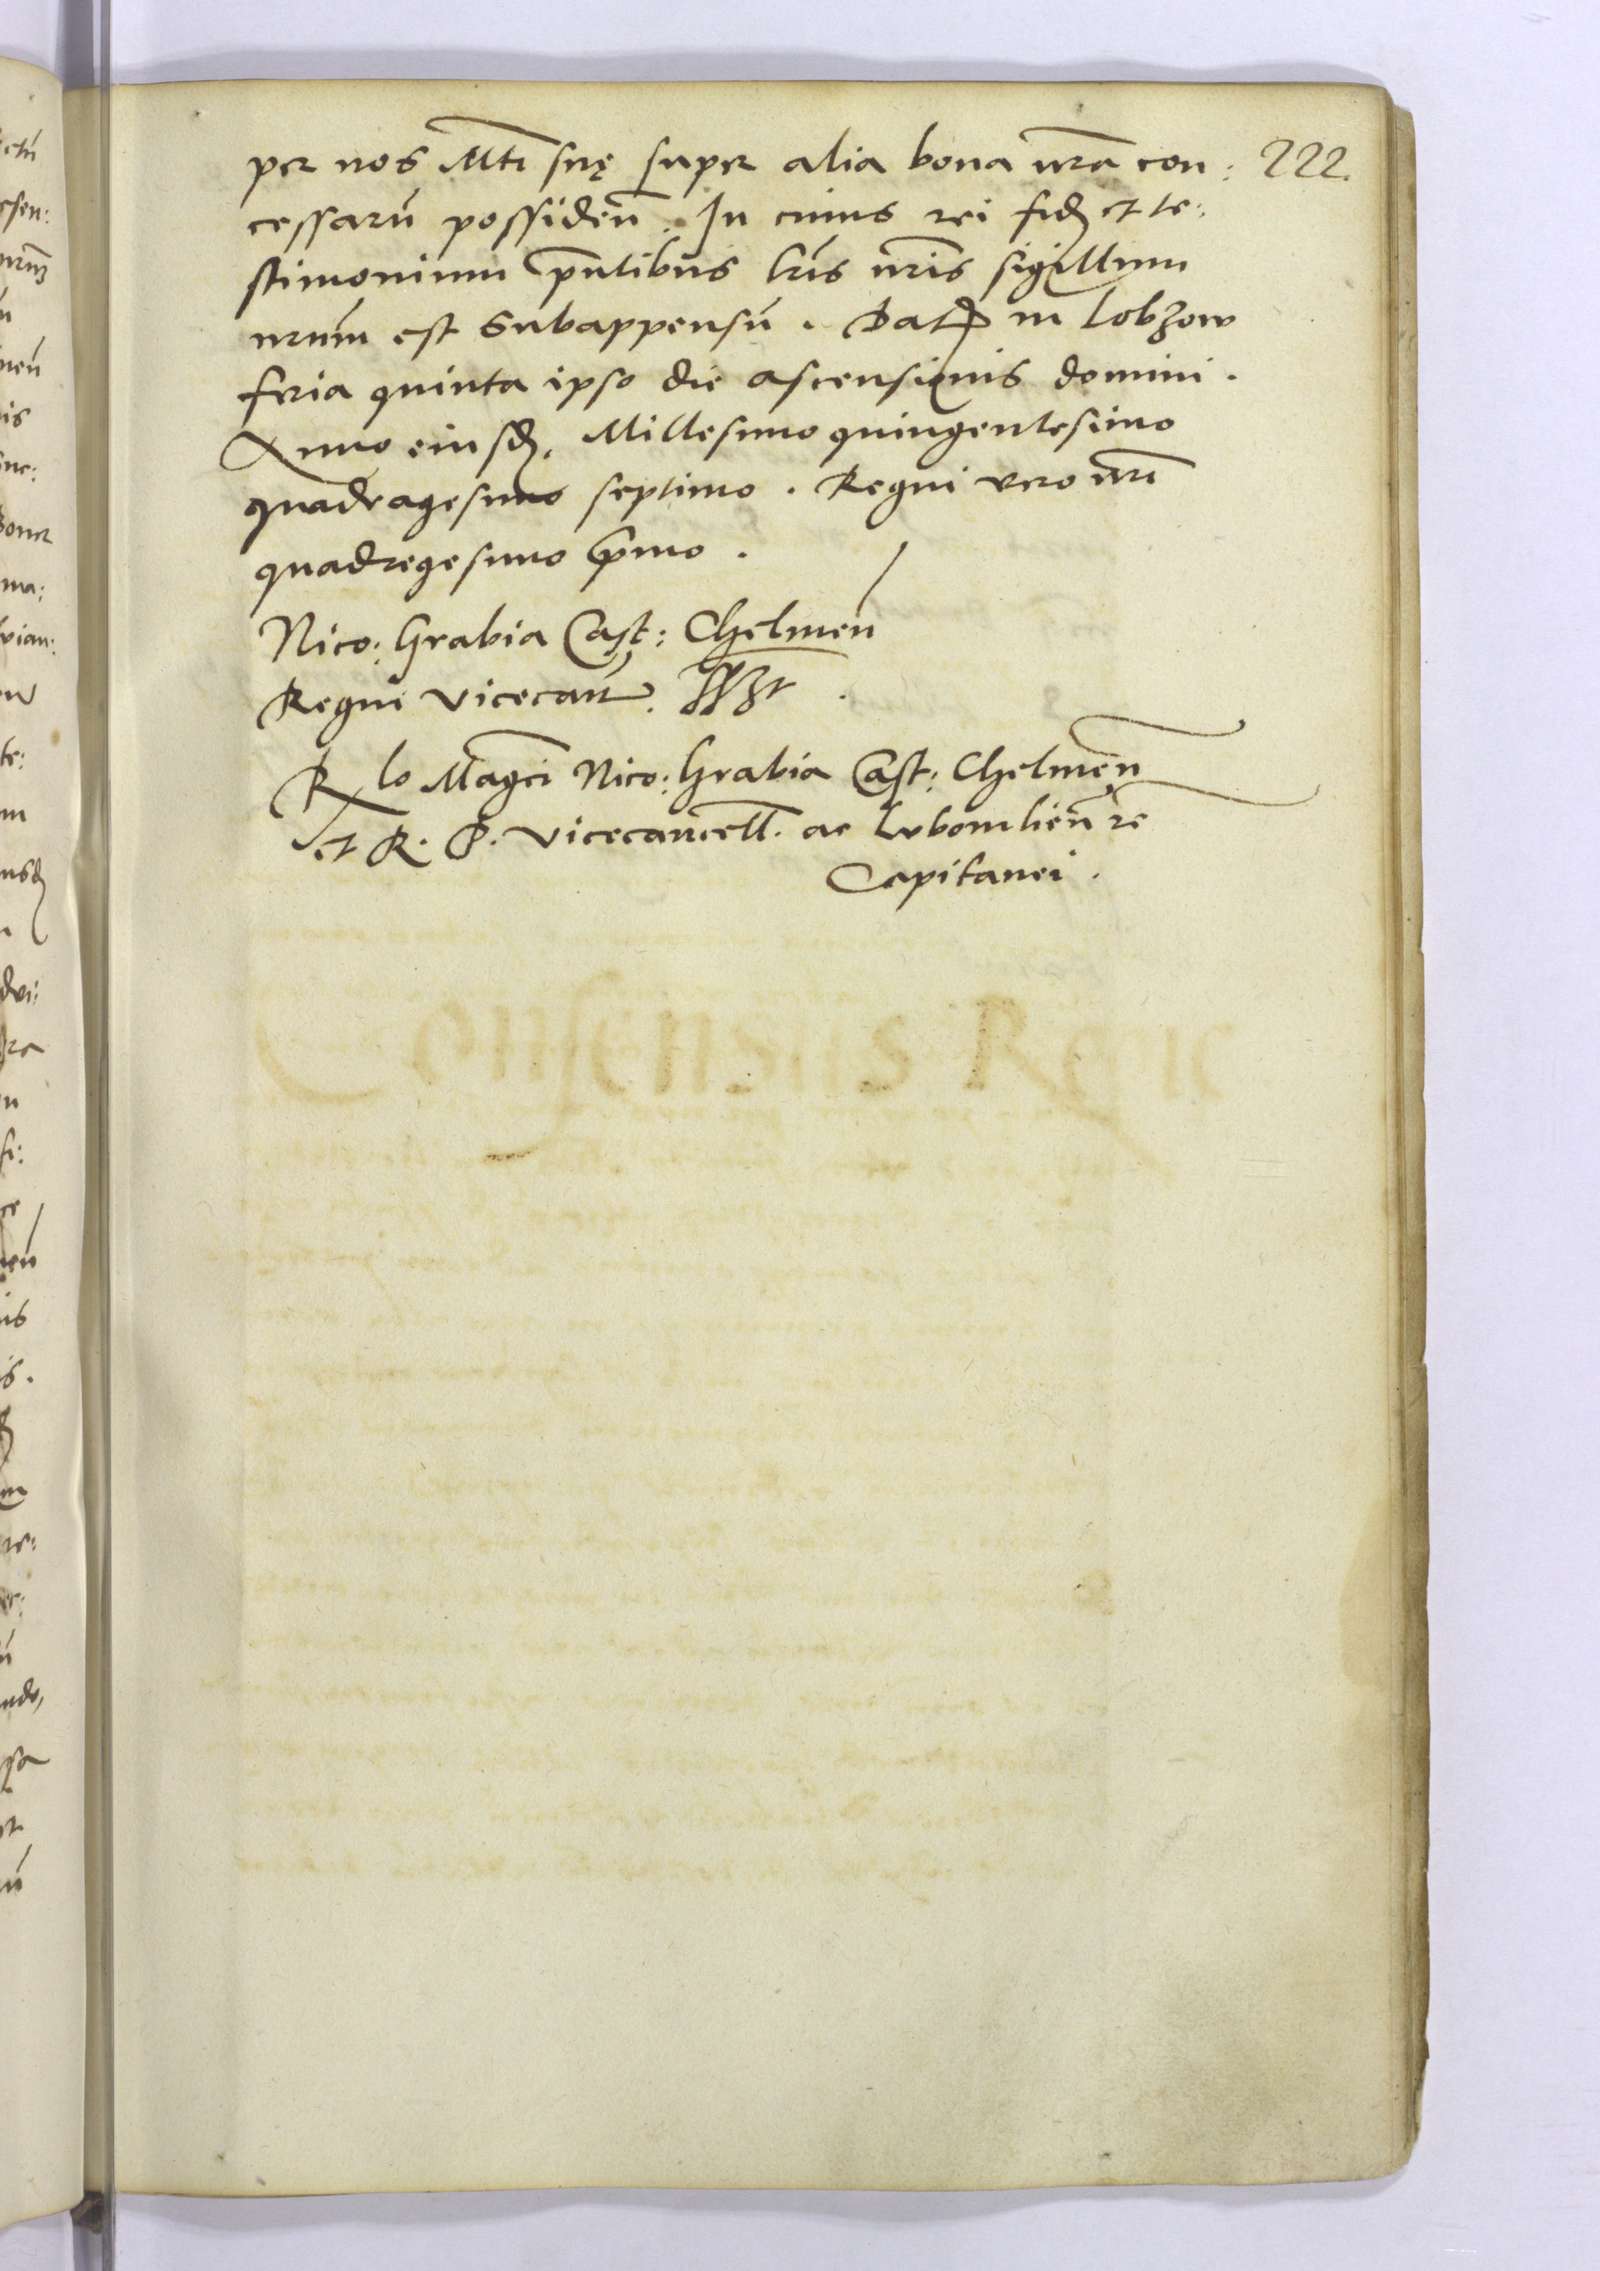 per nos Mti suę super alia bona nra con: 222.
cessarū possideñ. In cuius rei fidē et te:
stimonium pntibus lris nris sigillum
nrum est Subappensū. Dat in Lobzow
feria quinta ipso die ascensionis domini.
Anno eiusd. Millesimo quingentesimo
quadragesimo septimo. Regni vero nri
quadregesimo primo.
Nico: Grabia Cast: Chelmeñ
Regni vicecan.
R lo Magci Nico: Grabia Cast: Chelmeñ
et R. P. vicecancell. ac Lubomlieñ rc
Capitanei.
Consensus Regie